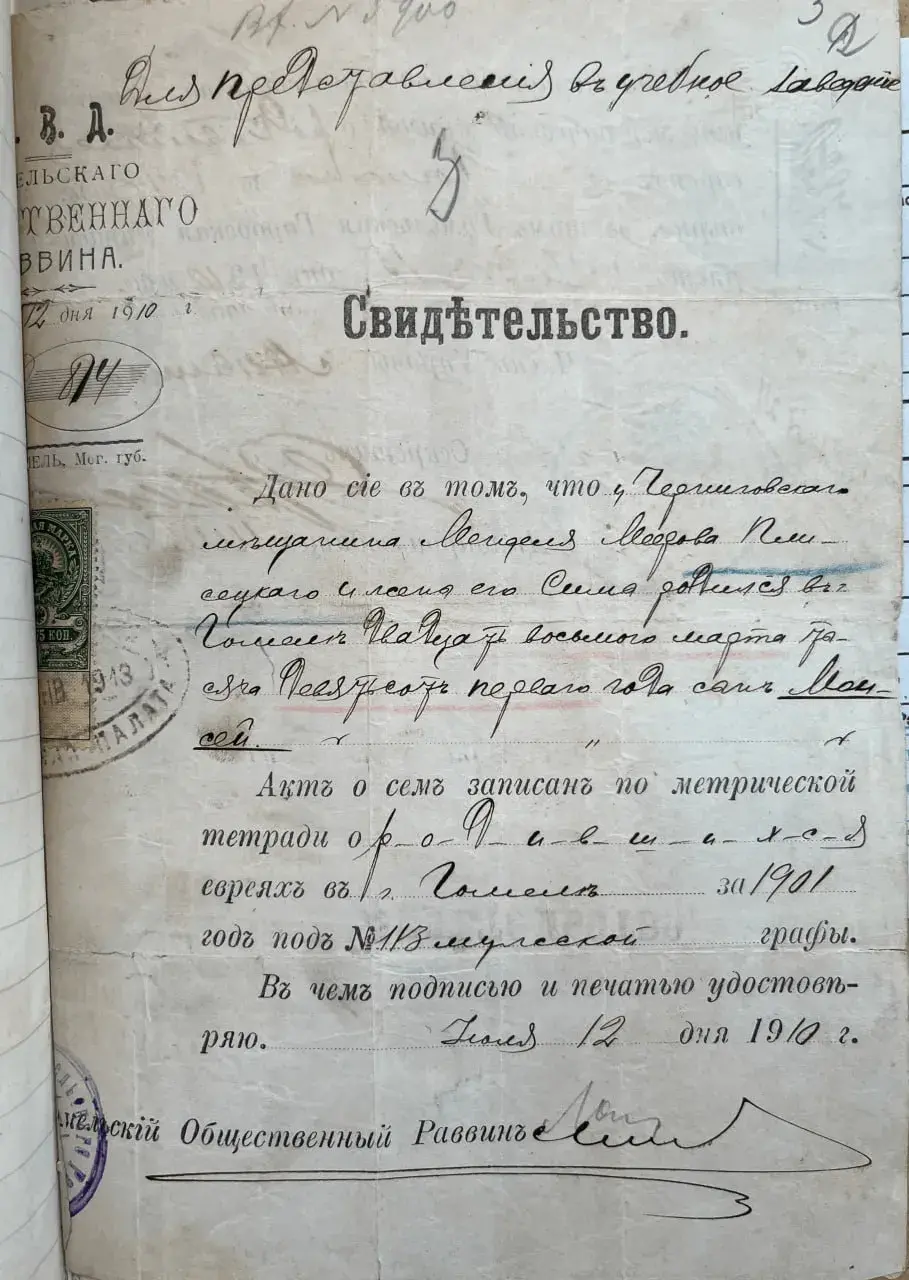 Вх. № 3900
3
Для представленія въ учебное заведеніе
. В. Д.
ЕЛЬСКАГО
СТВЕННАГО
ВВИНА.
12 дня 1910 г.
814
Свидѣтельство.
МЕЛЬ, Мог. губ.
АЯ МАРКА
75 КОП.
1913
ПАЛАТА
Дано сіе въ томъ, что у Черниговскаго
мѣщанина Менделя Меерова Пли-
сецкаго и жены его Симы родился въ
Гомелѣ двадцать восьмого марта ты-
сяча девятьсотъ перваго года сынъ Мои-
сей. „ „ „
Актъ о семъ записанъ по метрической
тетради о р-о-д-и-в-ш-и-х-с-я
евреяхъ въ г. Гомелѣ за 1901
годъ подъ № 113 мужеской графы.
Въ чемъ подписью и печатью удостовѣ-
ряю. Іюля 12 дня 1910 г.
омельскій Общественный Раввинъ